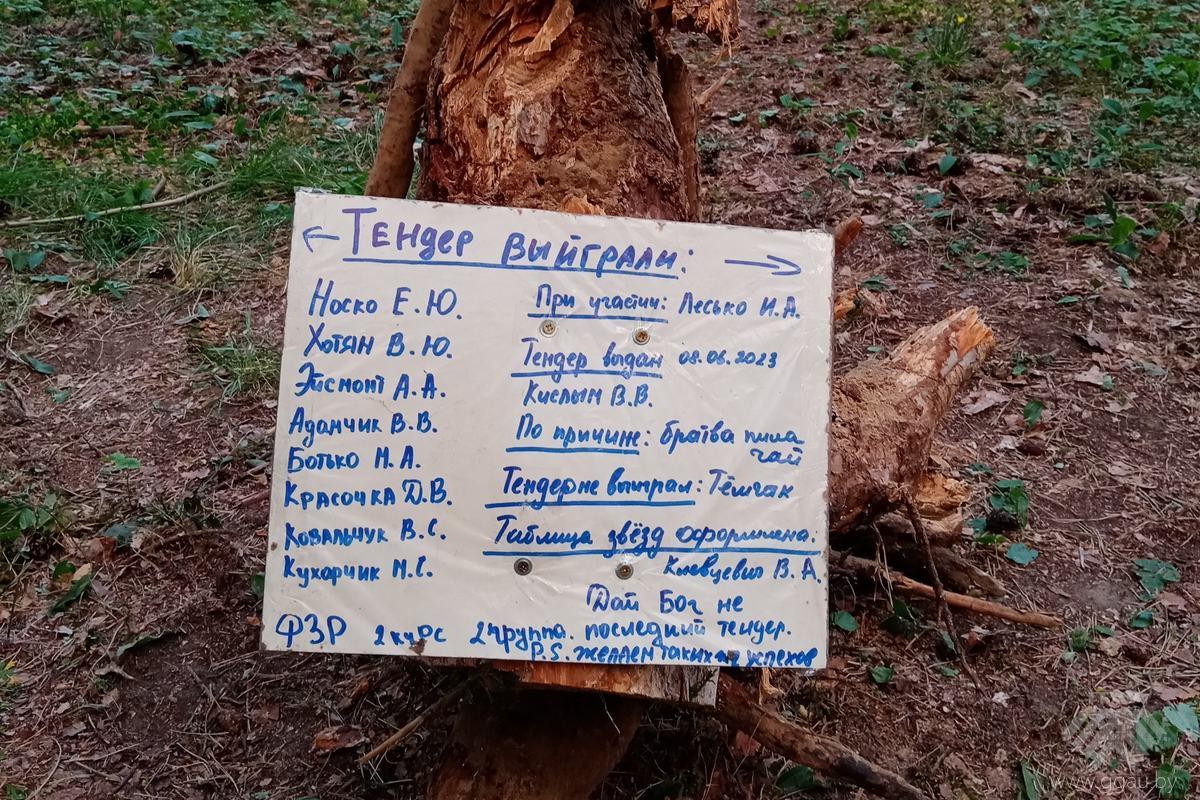 ← Тендер выйграли: →
Носко Е.Ю.
Хотян В.Ю.
Эйсмонт А.А.
Адамчик В.В.
Ботько Н.А.
Красочка Д.В.
Ковальчук В.С.
Кухарчик М.С.
ФЗР 2 курс 2 группа.
При участии: Лесько И.А.
Тендер выдан 08.06.2023
Кислым В.В.
По причине: братва пила
чай
Тендер не выиграл: Тёмчак
Таблица звёзд оформлена:
В.А.
Дай Бог не
последний тендер.
P.S. желаем таких же успехов
www.ggau.by